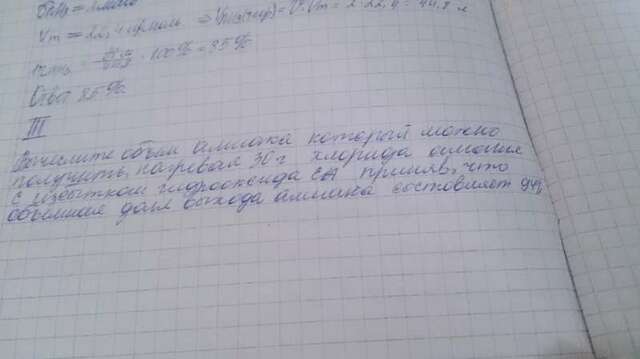 Vm = 22,4 ⇒ Vm = 2 · 22,4 = 44,8 л
· 100% = 85%
Ответ 85%
III
Вычислите объем аммиака который можно
получить, нагревая 30 г хлорида аммония
с избытком гидроксида приняв, что
объемная доля выхода аммиака составляет